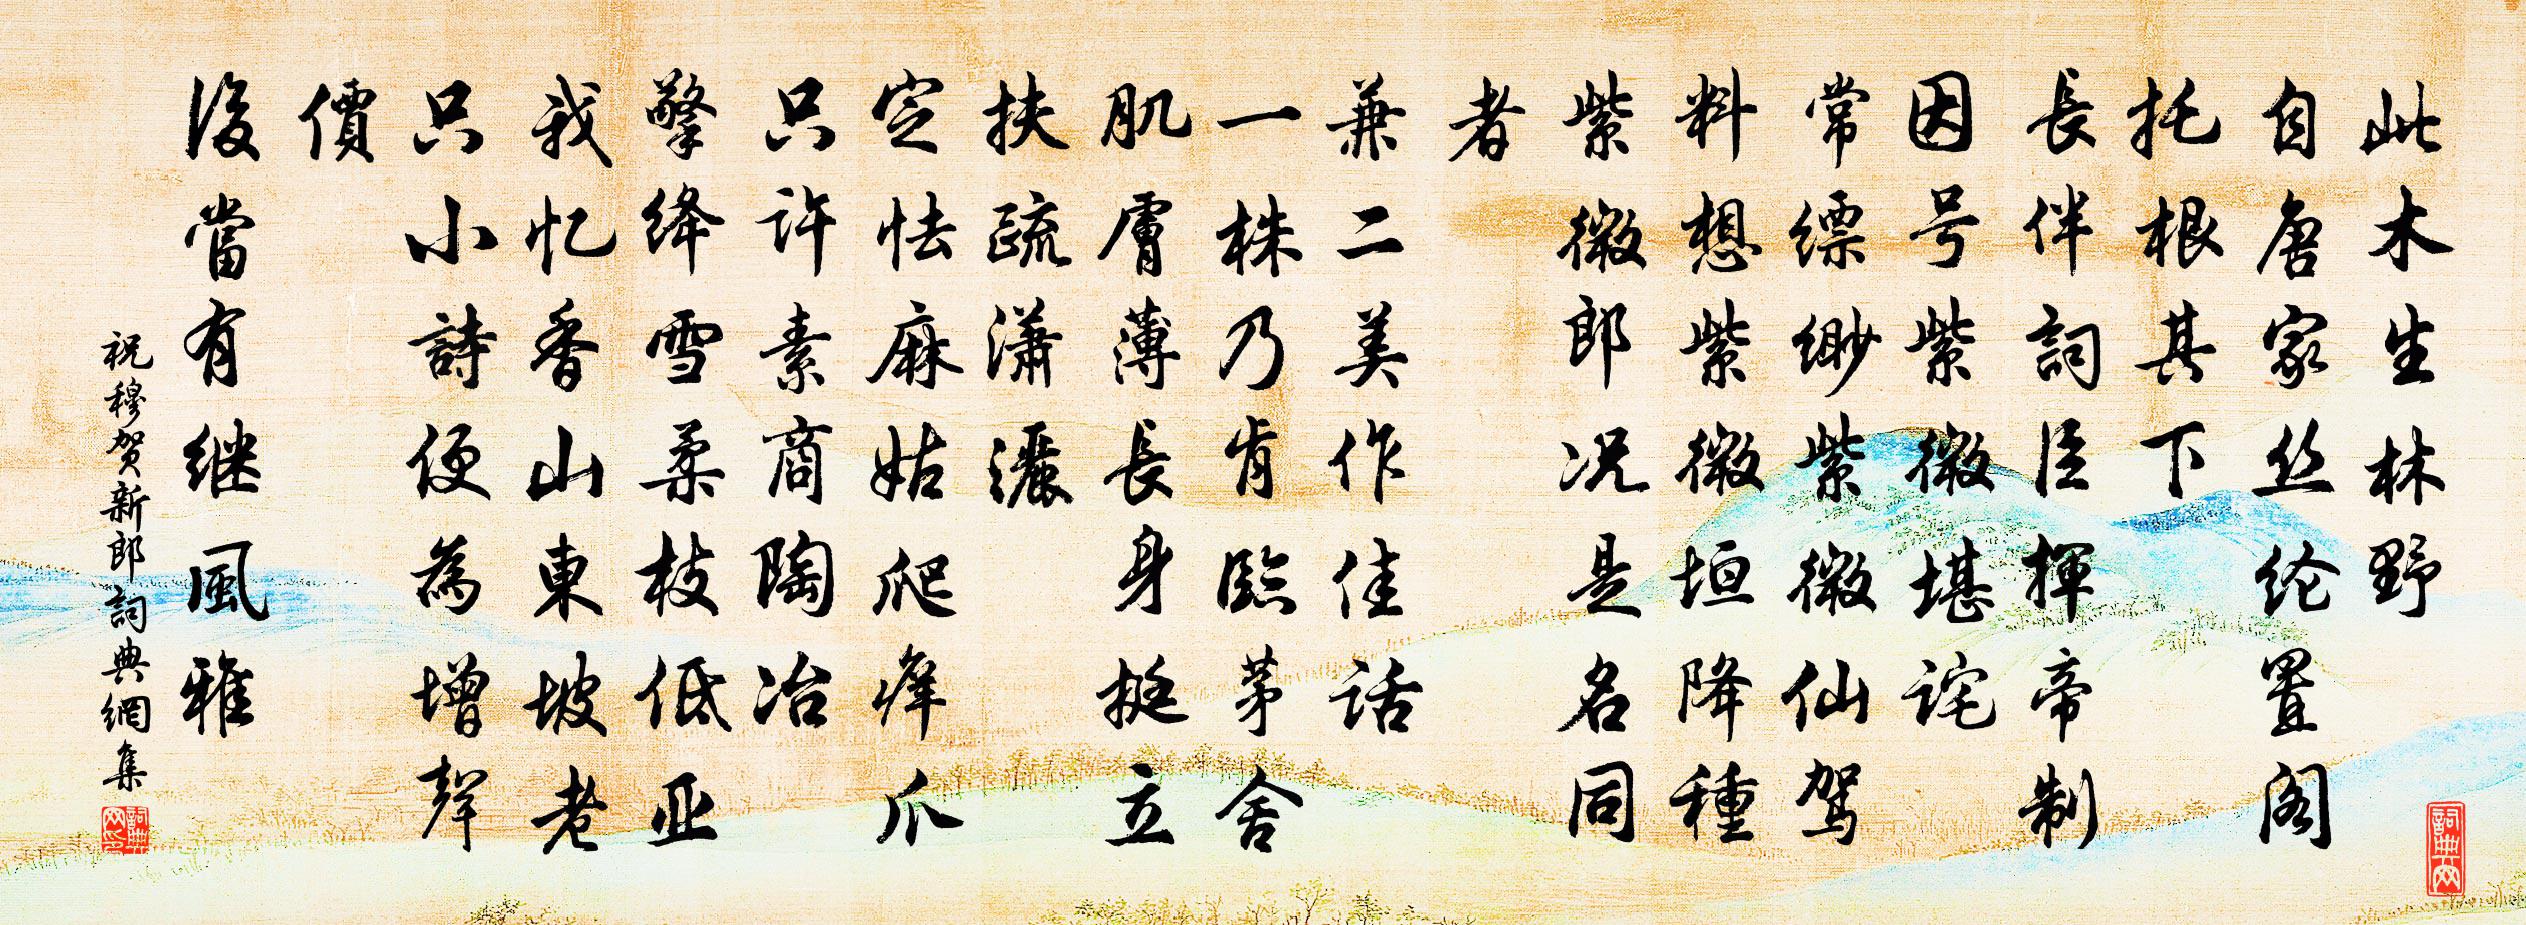 此木生林野
自唐家丝纶置阁
托根其下
長伴詞臣揮帝制
因号紫微堪诧
常缥缈紫微仙驾
料想紫微垣降種
紫微郎况是名同
者
兼二美作佳话
一株乃肯臨茅舍
肌膚薄長身挺立
扶疏潇灑
定怯麻姑爬痒爪
只许素商陶冶
擎绛雪柔枝低亚
我忆香山東坡老
只小詩便為增聲
價
後當有继風雅
祝穆贺新郎詞典網集
詞典网
詞典网印